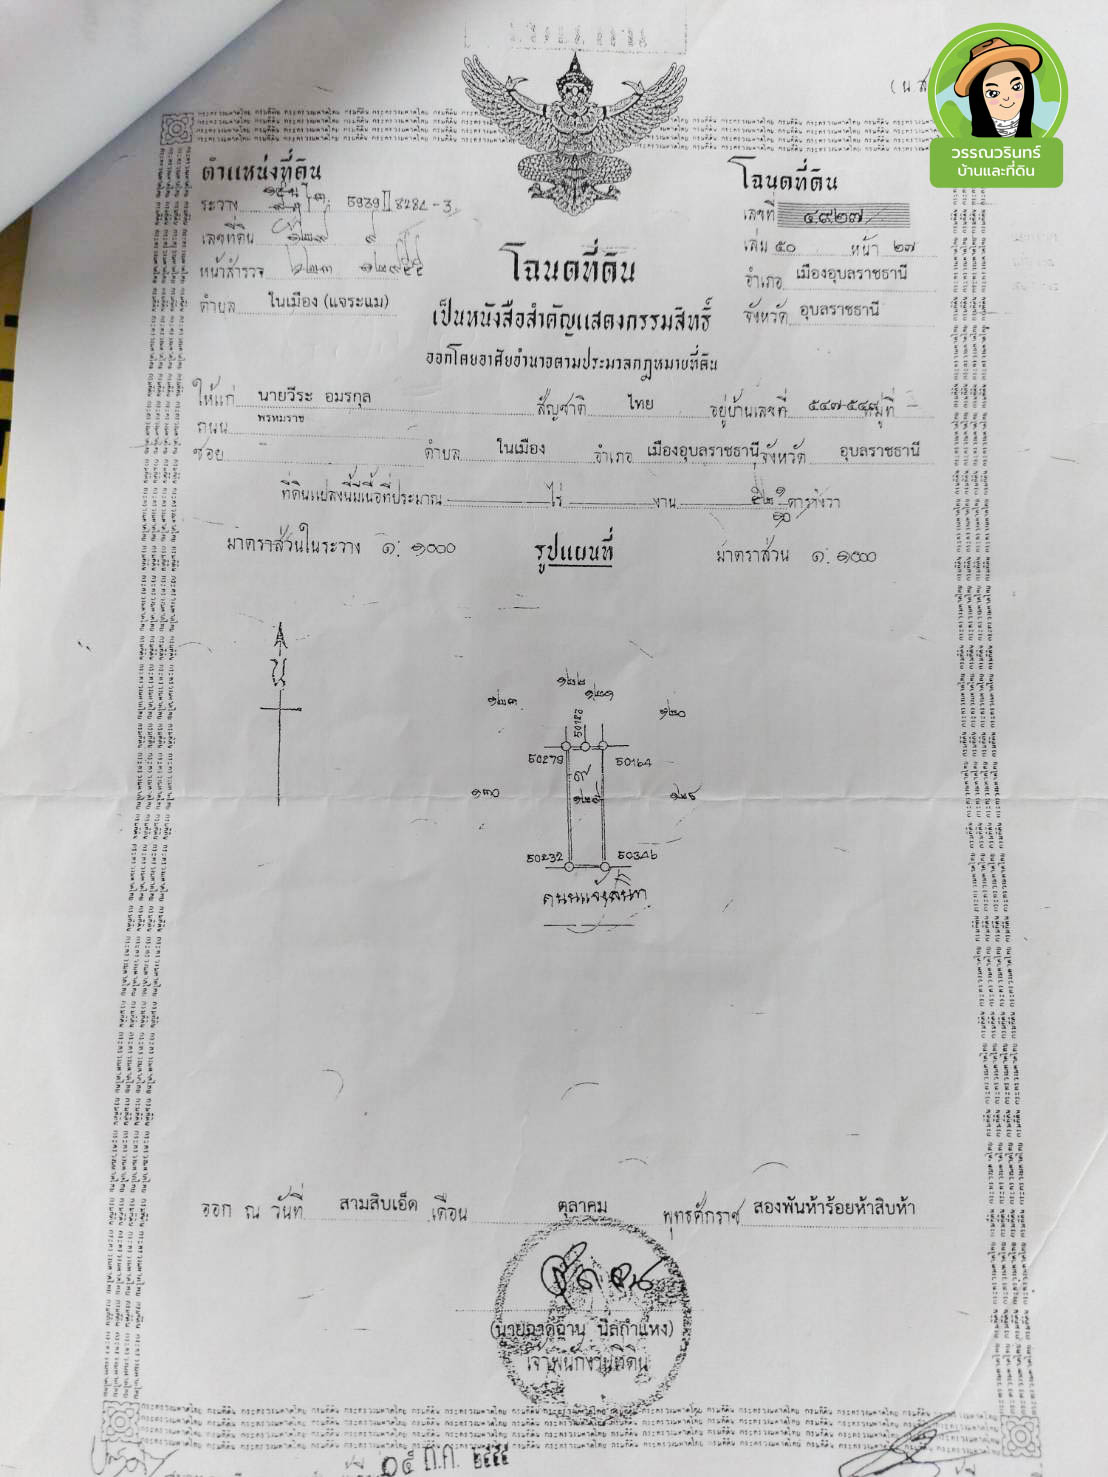 (น.ส.
วรรณวรินทร์
บ้านและที่ดิน
ตำแหน่งที่ดิน
โฉนดที่ดิน
ระวาง 5939 II 8284-3
เลขที่ ๔๙๒๗
เลขที่ดิน ๑๒๙ ๙
เล่ม ๕๐ หน้า ๒๗
หน้าสำรวจ
โฉนดที่ดิน
อำเภอ เมืองอุบลราชธานี
ตำบล ในเมือง (แจระแม)
เป็นหนังสือสำคัญแสดงกรรมสิทธิ์
จังหวัด อุบลราชธานี
ออกโดยอาศัยอำนาจตามประมวลกฎหมายที่ดิน
ให้แก่ นายวีระ อมรกุล สัญชาติ ไทย อยู่บ้านเลขที่ ๕๔๗-๕๔๙ หมู่ที่ -
ถนน พรหมราช
ซอย ตำบล ในเมือง อำเภอ เมืองอุบลราชธานี จังหวัด อุบลราชธานี
ที่ดินแปลงนี้มีเนื้อที่ประมาณ ไร่ งาน ๕๒ ๑/๑๐ ตารางวา
มาตราส่วนในระวาง ๑:๑๐๐๐ รูปแผนที่ มาตราส่วน ๑:๑๐๐๐
น
๑๒๒
๑๒๓ ๑๒๑ ๑๒๐
50279 50164
๙
๑๓๐ ๑๒๙ ๑๒๘
50232 50346
ถนนแจ้งสนิท
ออก ณ วันที่ สามสิบเอ็ด เดือน ตุลาคม พุทธศักราช สองพันห้าร้อยห้าสิบห้า
(นายฉาดฉาน นิลกำแหง)
เจ้าพนักงานที่ดิน
๑๕ ต.ค. ๒๕๕๕